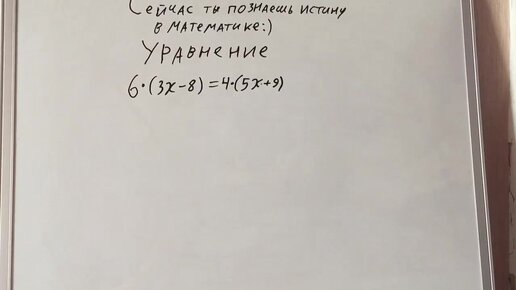 Сейчас ты познаешь истину
в математике:)
Уравнение
6·(3x-8)=4·(5x+9)